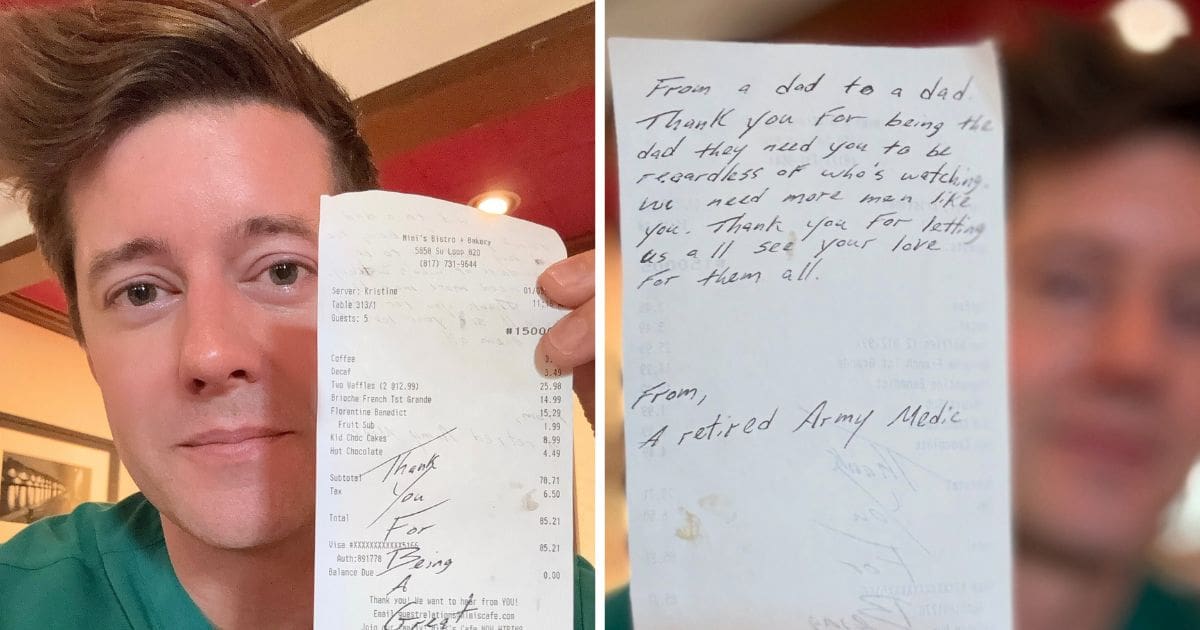 Mimi's Bistro + Bakery
5858 Sw Loop 820
(817) 731-9644
Server: Kristine
Table 313/1
Guests: 5
Coffee
Decaf 3.49
Two Waffles (2 @12.99) 25.98
Brioche French Tst Grande 14.99
Florentine Benedict 15.29
Fruit Sub 1.99
Kid Choc Cakes 8.99
Hot Chocolate 4.49
Subtotal 78.71
Tax 6.50
Total 85.21
Visa #XXXXXXXXXXXX5166 85.21
Auth:891778
Balance Due 0.00
Thank
You
For
Being
A
Great
Thank you! We want to hear from YOU!
Email guestrelations@mimiscafe.com
From a dad to a dad.
Thank you for being the
dad they need you to be
regardless of who's watching.
we need more men like
you. Thank you for letting
us all see your love
for them all.
From,
A retired Army Medic